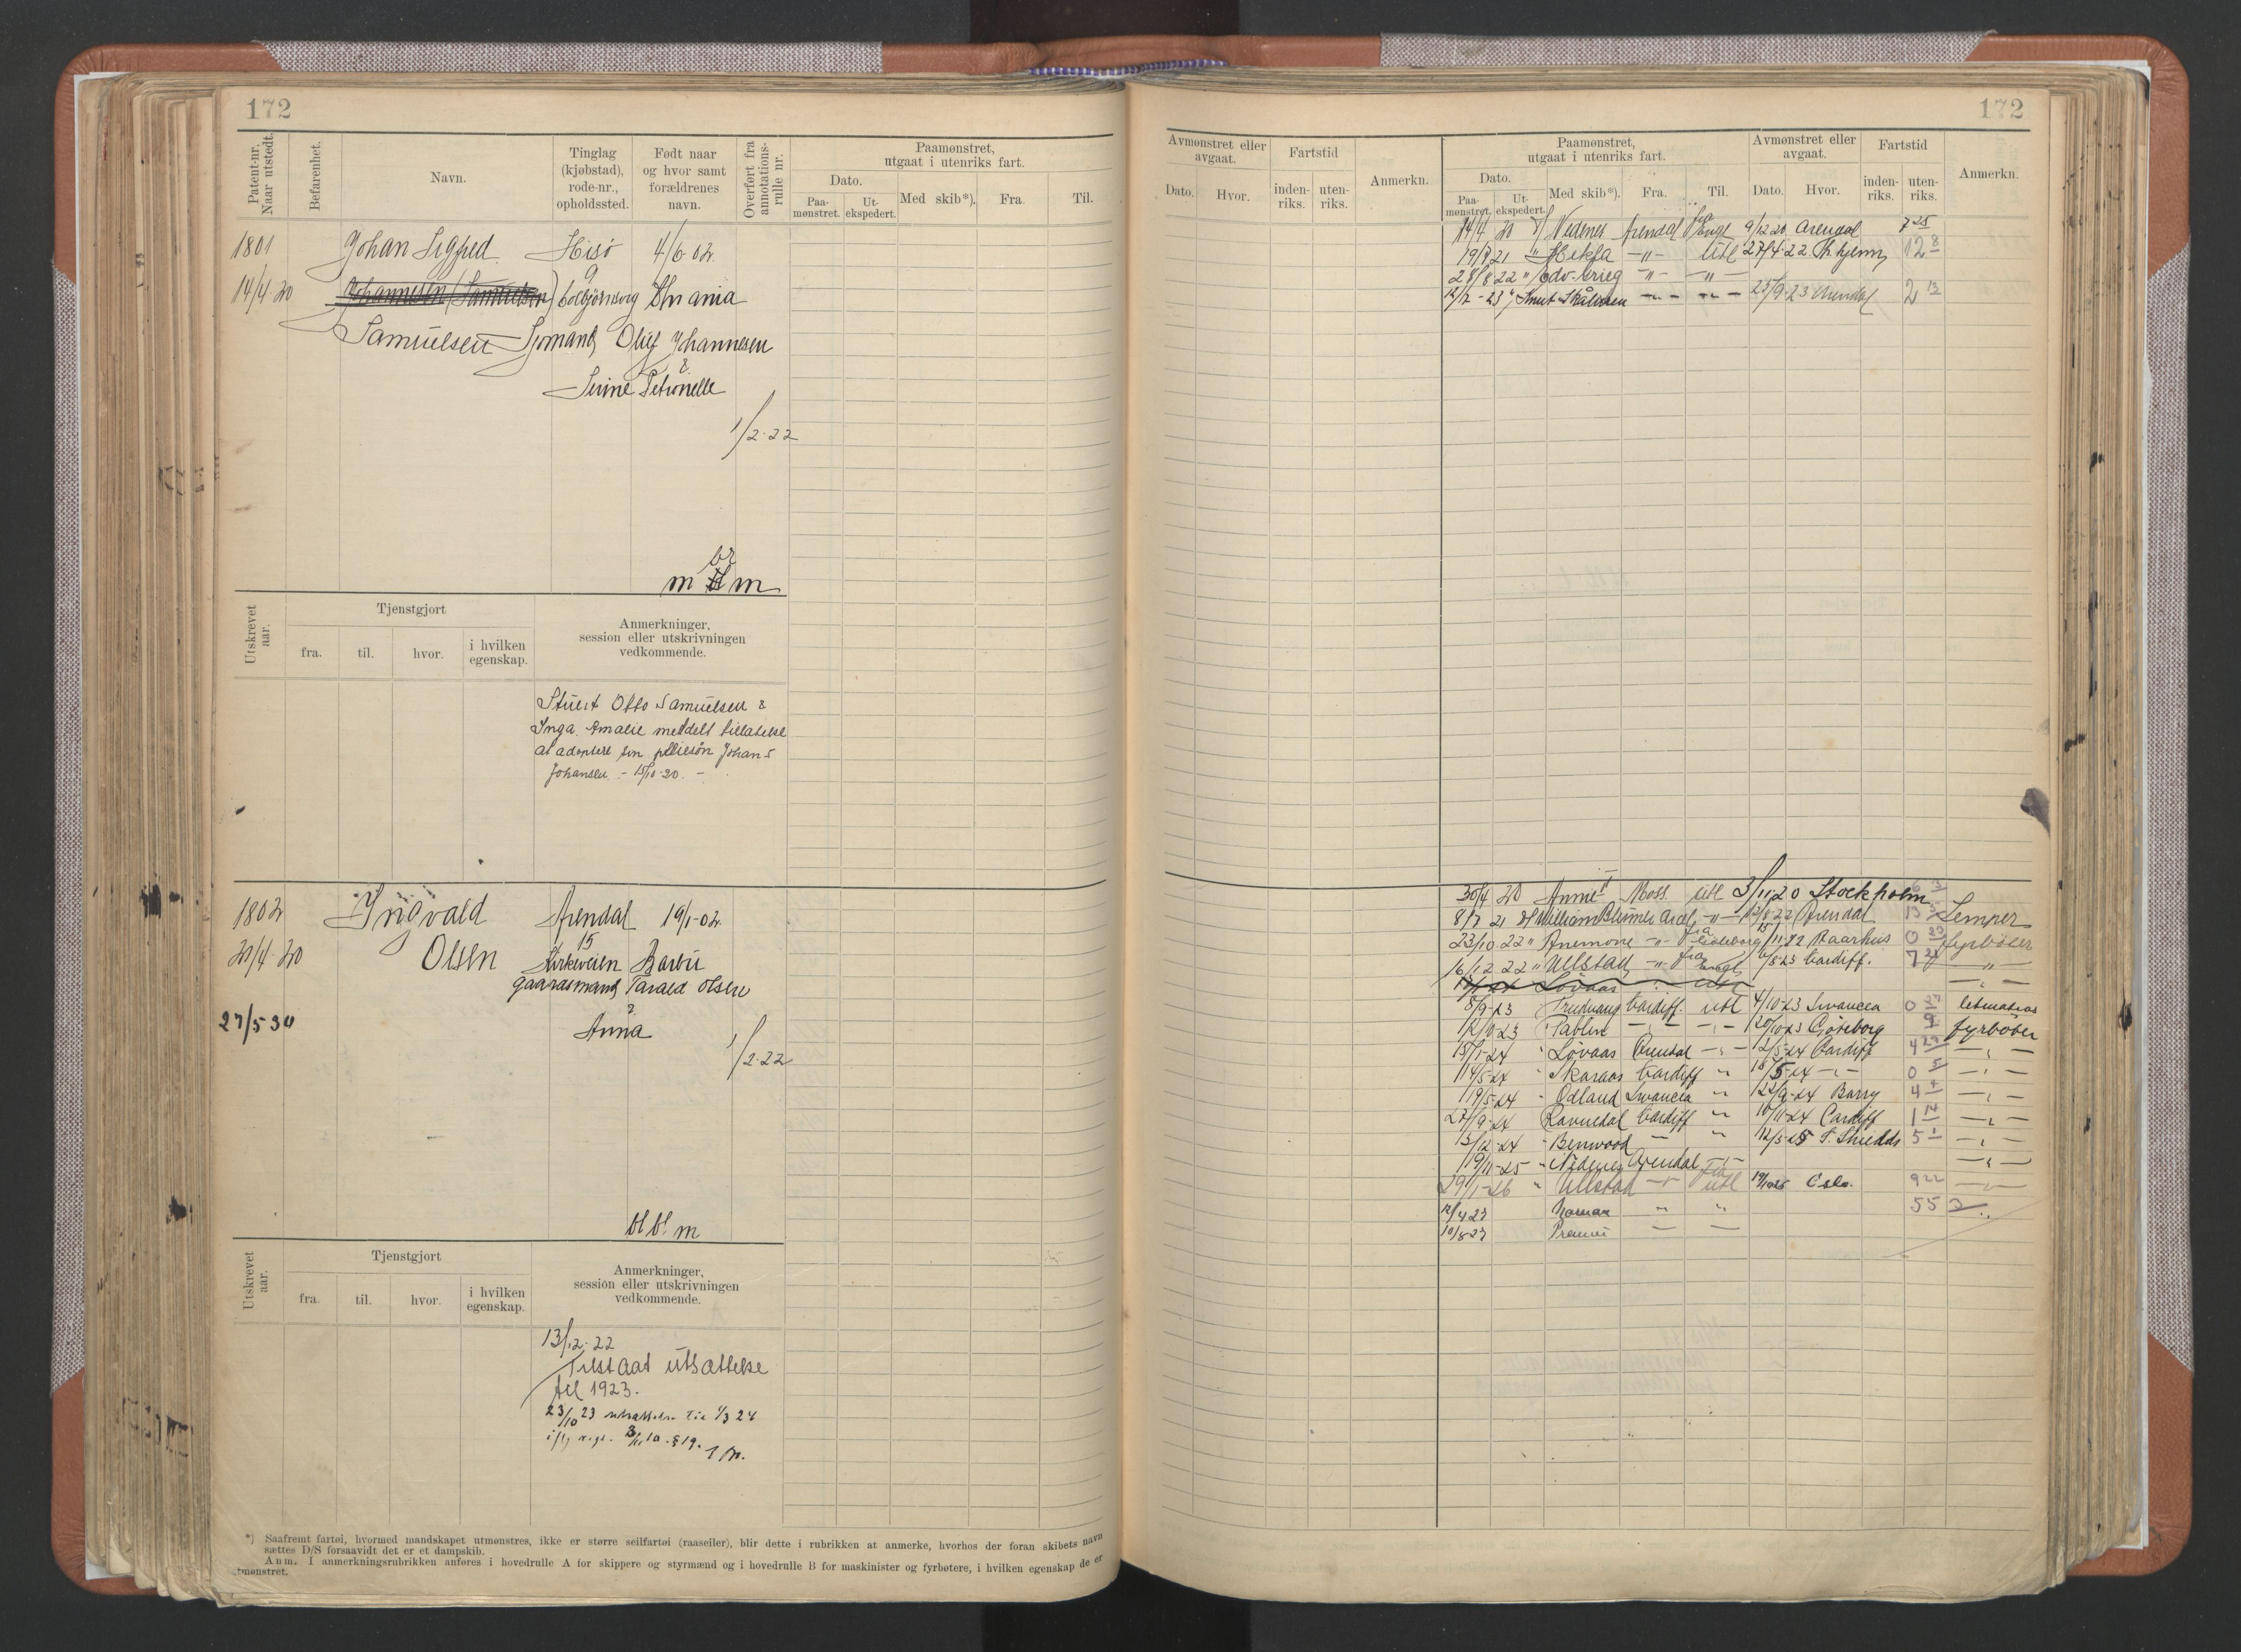 172
Patent-nr. Naar utstedt.
Befarenhet.
Navn.
Tinglag (kjøbstad), rode-nr., opholdssted.
Født naar og hvor samt forældrenes navn.
Overført fra annotations-rulle nr.
Paamønstret, utgaat i utenriks fart.
Dato.
Paa-mønstret.
Ut-ekspedert.
Med skib*).
Fra.
Til.
1801
Johan Sigfred
Hisø
4/6 02
14/4 20
Johannesen (Samuelsen)
9
Colbjørnsvig
Samuelsen
Sjømand Oluf Johannesen
&
Serine Petronelle
1/2-22
m
m
Utskrevet aar.
Tjenstgjort
fra.
til.
hvor.
i hvilken egenskap.
Anmerkninger, session eller utskrivningen vedkommende.
Stuert Otto Samuelsen &
Inga Amalie meddelt tillatelse
at adoptere sin pleiesøn Johan S
Johansen. - 15/10-20. -
1802
Ingvald
Arendal
19/1-02
15
20/4 20
Olsen
Kirkeveien Barbu
gaardsmand Tarald Olsen
&
27/5-30
Anna
1/2-22
bl bl m
Utskrevet aar.
Tjenstgjort
fra.
til.
hvor.
i hvilken egenskap.
Anmerkninger, session eller utskrivningen vedkommende.
13/12-22
Tilstaat utsættelse
til 1923.
23/10 23 utsættelse til 1/3 24
*) Saafremt fartøi, hvormed mandskapet utmønstres, ikke er større seilfartøi (raaseiler), blir dette i rubrikken at anmerke, hvorhos der foran skibets navn
sættes D/S forsaavidt det er et dampskib.
Anm. I anmerkningsrubrikken anføres i hovedrulle A for skippere og styrmænd og i hovedrulle B for maskinister og fyrbøtere, i hvilken egenskap de er
utmønstret.
172
Avmønstret eller avgaat.
Fartstid
Dato.
Hvor.
inden-riks.
uten-riks.
Anmerkn.
Paamønstret, utgaat i utenriks fart.
Dato.
Paa-mønstret.
Ut-ekspedert.
Med skib*).
Fra.
Til.
Avmønstret eller avgaat.
Dato.
Hvor.
Fartstid
inden-riks.
uten-riks.
Anmerkn.
14/4 20 Nedenes Arendal fra Engl 9/12 20 Arendal 7 25
19/8 21 " Hekla -"- utl 27/4-22 12 8
28/8 22 " Edv. Grieg -"- -"-
12/7-23 " Knut Skåluren -"- -"- 25/9-23 Arendal 2 13
30/4 20 Annie Moss utl 3/11-20 Stockholm
8/7 21 William Blumer Ardl -"- 12/8 22 Arendal 13 Lemper
23/10 22 " Anemone -"- fra Göteborg 15/11-22 Aarhus 0 23 fyrbøter
16/12 22 " Ullstad -"- fra Engl /5-23 Cardiff. 7 -"-
Løvaas utl
8/9-23 Fredvang Cardiff utl 4/10-23 Swansea 0 27 letmatros
12/10-23 -"- -"- 20/10-23 Göteborg 9 fyrbøter
15/1-24 " Løvaas Arendal -"- 12/5-24 Cardiff 4 -"-
14/5-24 " Skaraas Cardiff " 18/5-24 -"- 0 5 -"-
19/5-24 " Odland Swansea " 22/9-24 Barry 4 4 -"-
27/9-24 Ravnedal Cardiff " 10/11-24 Cardiff 1 14 -"-
13/12-24 " Benwood - " 12/5-25 S. Shields 5 1 -"-
19/11-25 " Nidenes Arendal -"- -"-
29/1-26 " Ullstad -"- utl 19/10-26 Oslo. 9 22
12/4 27 " " 55 2
10/8-27 Premier - -